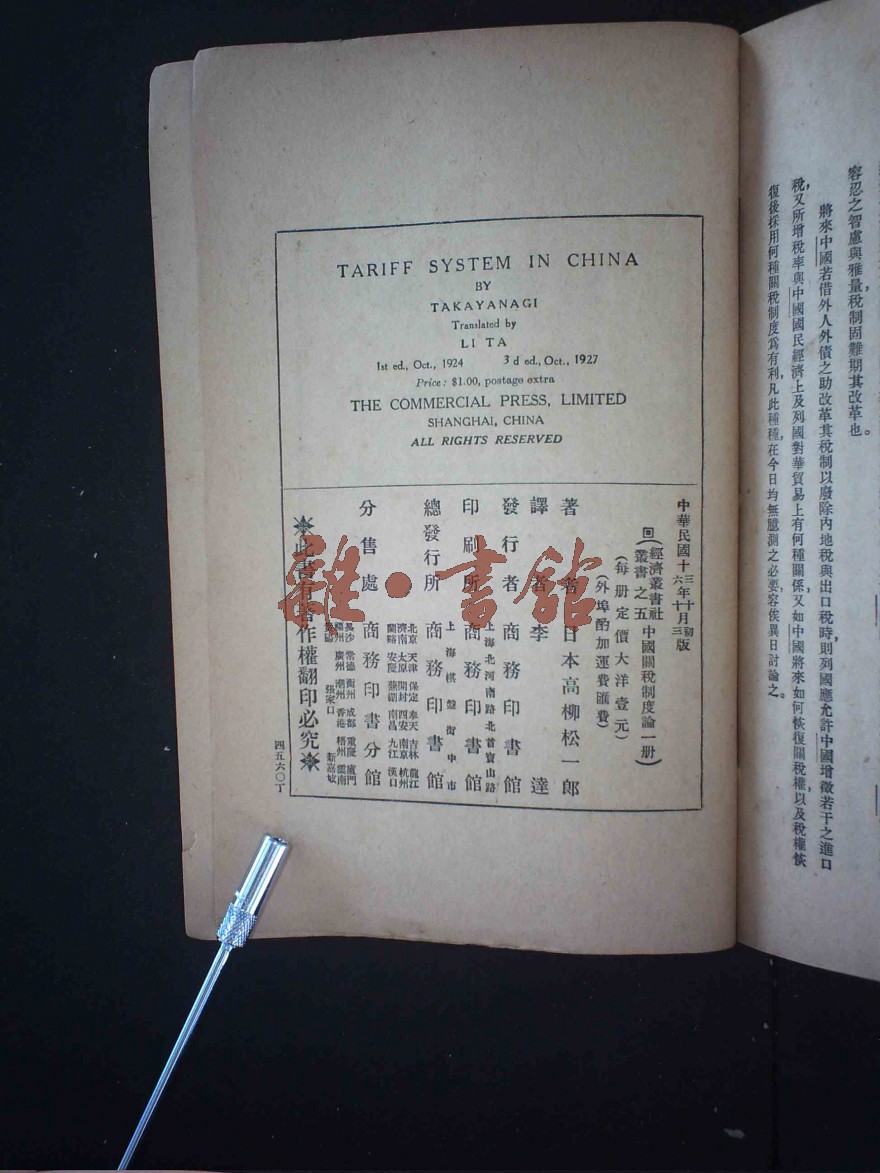 容忍之智慮與雅量，稅制固難期其改革也。
將來中國若借外人外債之助改革其稅制以廢除內地稅與出口稅時，則列國應允許中國增徵若干之進口
稅，又所增稅率與中國國民經濟上及列國對華貿易上有何種關係，又如中國將來如何恢復關稅權，以及稅權恢
復後採用何種關稅制度爲有利，凡此種種，在今日均無臆測之必要，容俟異日討論之。
TARIFF SYSTEM IN CHINA
BY
TAKAYANAGI
Translated by
LI TA
1st ed., Oct., 1924 3 d ed., Oct., 1927
Price: $1.00, postage extra
THE COMMERCIAL PRESS, LIMITED
SHANGHAI, CHINA
ALL RIGHTS RESERVED
中華民國十三年十月初版
六年十月三版
回(經濟叢書社叢書之五 中國關稅制度論一册)
(每册定價大洋壹元)
(外埠酌加運費匯費)
著者 日本高柳松一郎
譯者 李達
發行者 商務印書館
印刷所 上海北河南路北首寶山路 商務印書館
總發行所 上海棋盤街中市 商務印書館
分售處 商務印書分館
北京 天津 保定 奉天 吉林 龍江
濟南 太原 開封 西安 南京 杭州
蘭谿 安慶 蕪湖 南昌 九江 漢口
長沙 常德 衡州 成都 重慶 廈門
福州 廣州 潮州 香港 梧州 雲南
張家口 新嘉坡
※此書有著作權翻印必究※
四五六〇丁
雜·書館